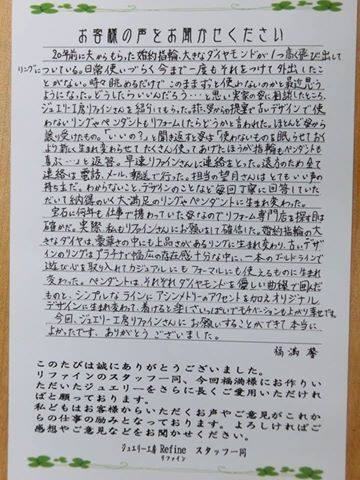 お客様の声をお聞かせください
20年前に夫からもらった婚約指輪。大きなダイヤモンドが1つ高く飛び出して
リングについている。日常使いづらく今まで一度もそれをつけて外出したこ
とがない。時々眺めるだけで“このままずっと使わないのかも”と最近思う
ようになった。どうしたらいいんだろう・・・と思い実家の姿に相談したところ
ジュエリー工房リファインさんを紹介してもらった。
わないリングやペンダントもリフォームしたらどうかと言われた。ほとんど
譲り受けたもの。「いいの?」と聞き返すと「使わないものを眠らせておく
より新しく生まれ変わらせてたくさん使ってあげたほうが指輪もペンダントも
喜ぶ…」と返答。早速リファインさんに連絡をとった。遠方のため全て
連絡は電話、メール、郵送で行った。担当の望月さんはとてもいい声の
持ち主だ。わからないこと、デザインのことなど毎回丁寧に回答していた
だいて納得のいく大満足のリングやペンダントに生まれ変わった。
宝石に何年も仕事で携わっていた なのでリフォーム専門店を探す目は
確かだ。実際私もリファインさんにお願いして確信した。婚約指輪の大
きなダイヤは、豪華さの中にも上品さがあるリングに生まれ変わり、古いデザイ
ンのリングはプラチナで幅広の存在感十分な中に、一本のゴールドラインで
遊び心を取り入れてカジュアルにもフォーマルにも使えるものに生まれ
変わった。ペンダントは、それぞれダイヤモンドを優しい曲線で囲んだ
ものと、シンプルなラインにアシンメトリーのアクセントを加えオリジナル
デザインに生まれ変わって、着けると楽しさいっぱいでモチベーションもより上がり幸せです。
今回、ジュエリー工房リファインさんにお願いすることができて本当に
よかったです。ありがとうございました。
福満
このたびは誠にありがとうございました。
リファインのスタッフ一同、今回福満様にお作りい
ただいたジュエリーをさらに長くご愛用いただけれ
ばと願っております。
私どもはお客様からいただくお声やご意見がこれか
らの仕事の励みとなっております。よろしければご
感想やご意見などをお聞かせください。
ジュエリー工房 Refine スタッフ一同
リファイン